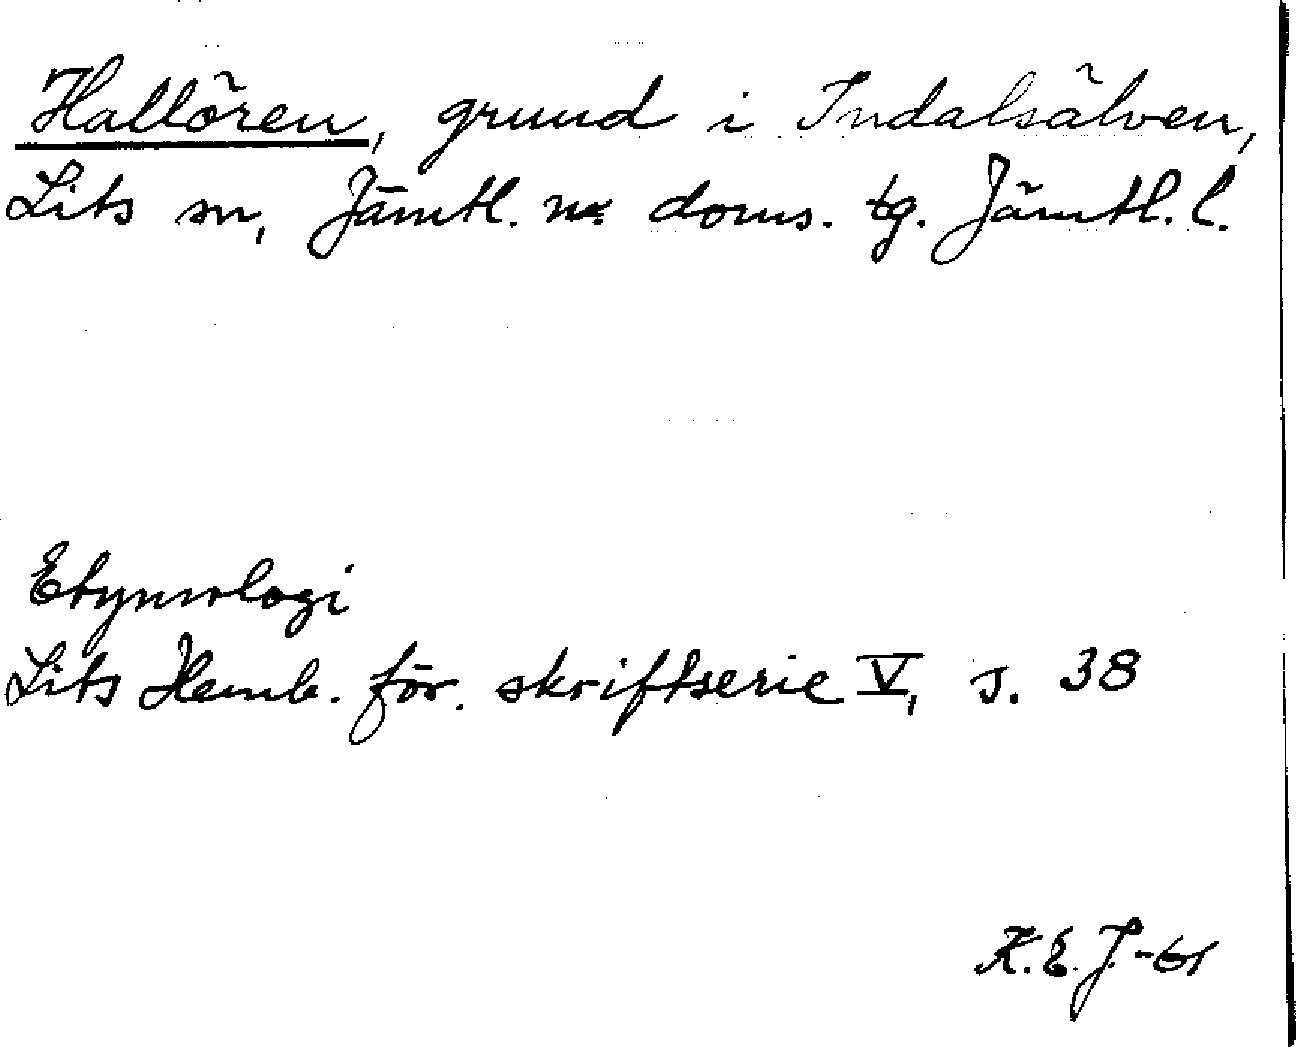 Hallören, grund i Indalsälven,
Lits sn, Jämtl. n:a doms. tg. Jämtl. l.
Etymologi
Lits Hemb. för. skriftserie V, s. 38
K.E.J. -61